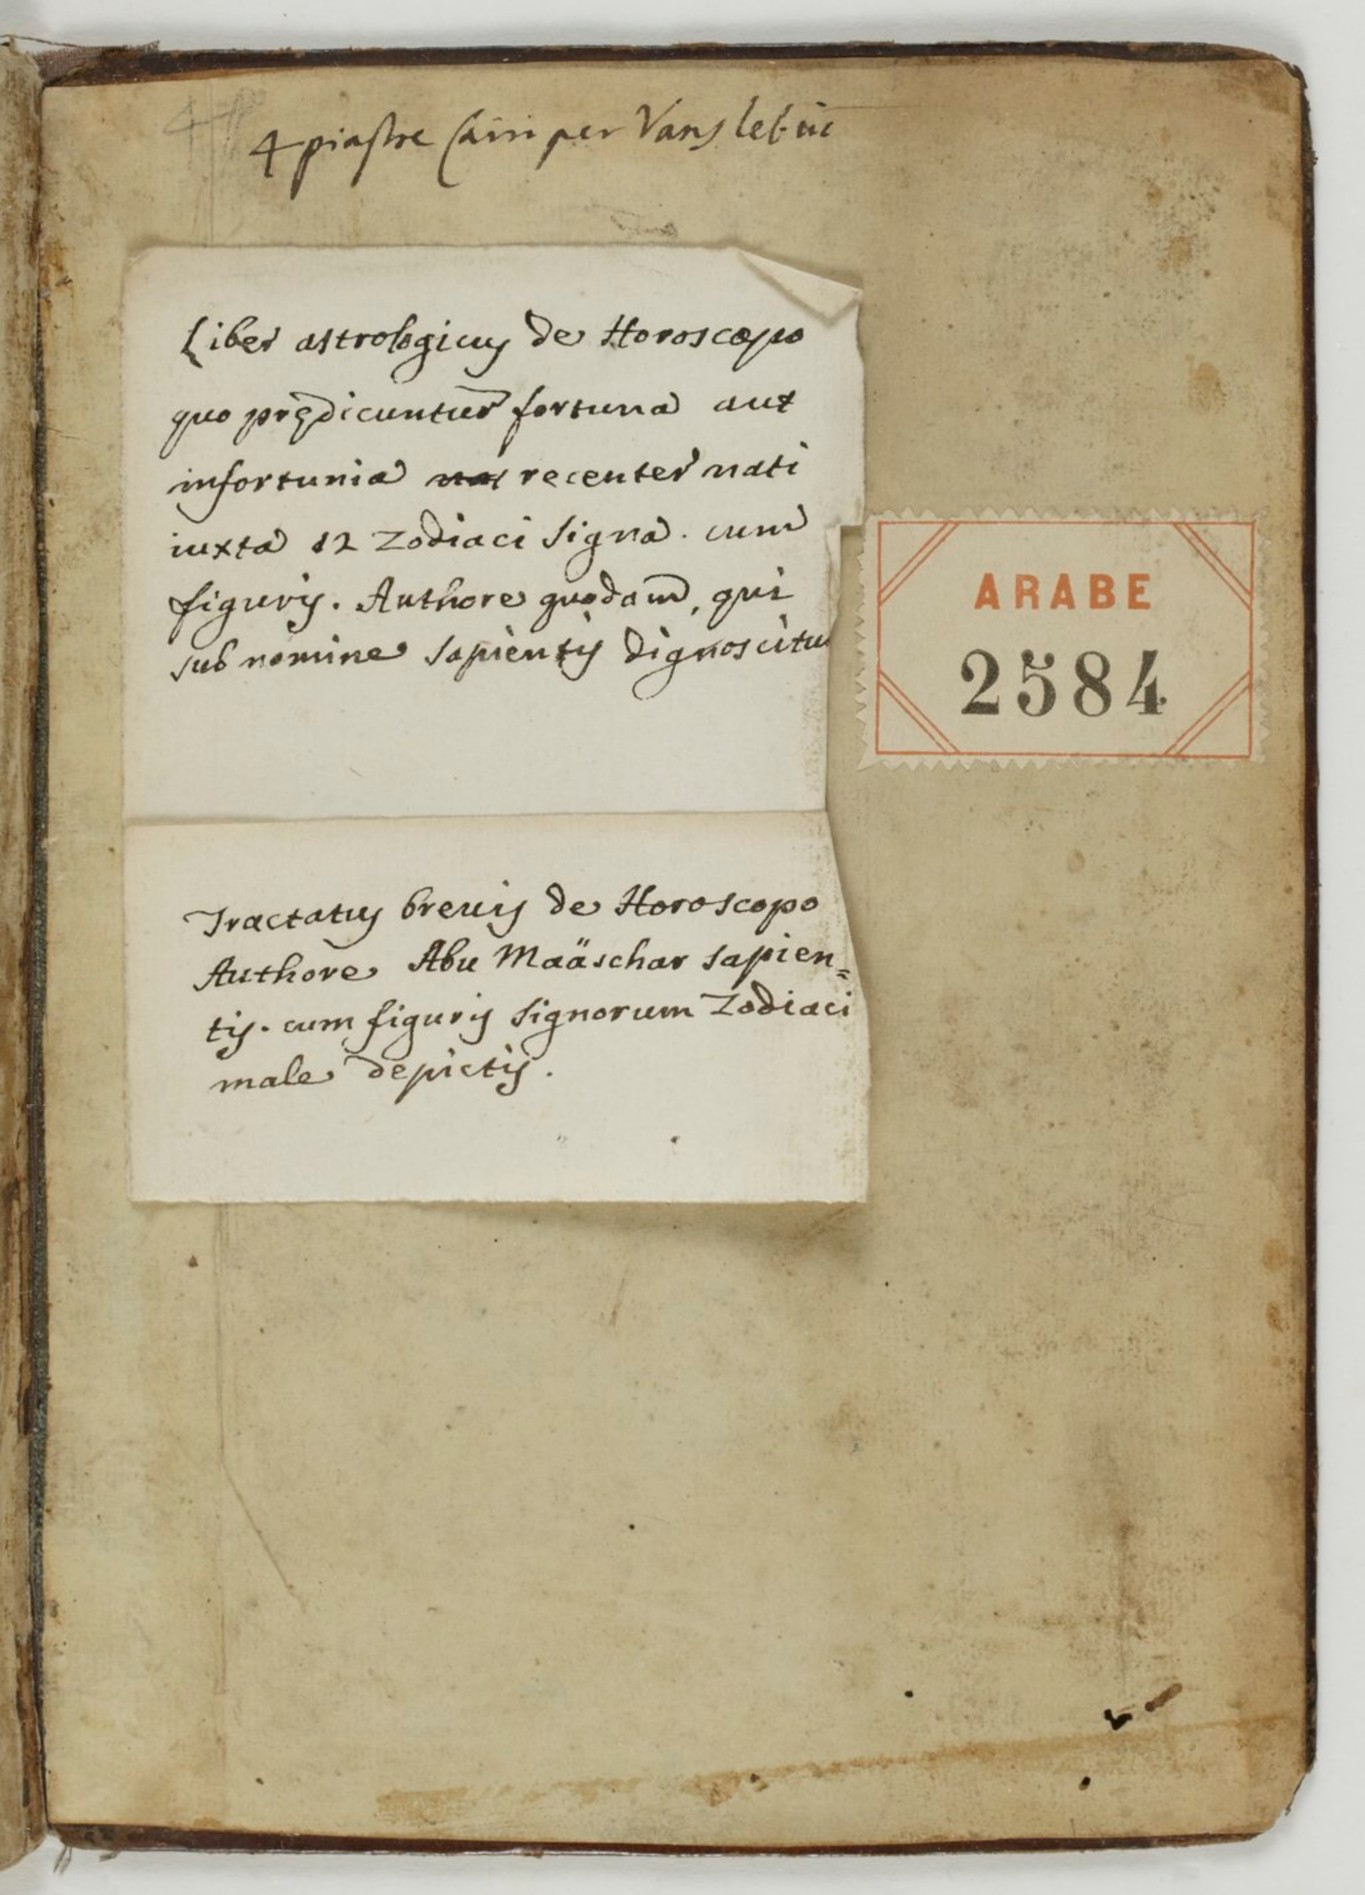 4 piastre Cairi per Vansleb
Liber astrologicus de Horoscopo
quo prędicuntur fortuna aut
infortunia recenter nati
iuxta 12 Zodiaci signa. cum
figuris. Authore quodam, qui
sub nomine sapientis dignoscitur
ARABE
2584
Tractatus breuis de Horoscopo
Authore Abu Maäschar sapien=
tis. cum figuris signorum Zodiaci
male depictis.